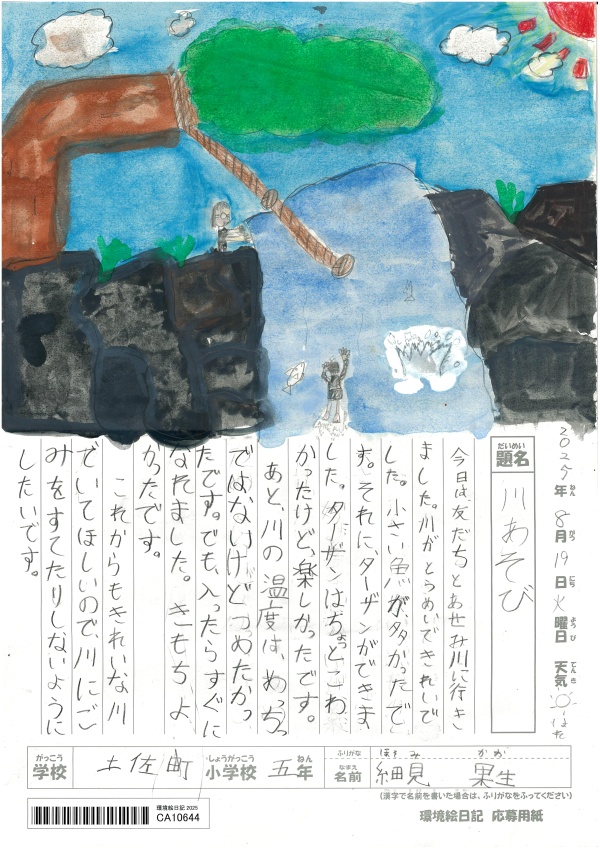 2025年ねん 8月がつ 19日にち 火曜日ようび 天気てんき はれ
だいめい
題名
川あそび
今日は友だちとあせみ川に行き
ました。川がとうめいできれいで
した。小さい魚が多かったで
す。それに、ターザンができま
した。ターザンはちょっとこわ
かったけど、楽しかったです。
あと、川の温度は、めっちゃ
ではないけどつめたかっ
たです。でも、入ったらすぐに
なれました。きもちよ
かったです。
これからもきれいな川
でいてほしいので、川にご
みをすてたりしないように
したいです。
がっこう
学校
土佐町
しょうがっこう
小学校
五年ねん
ふりがな
なまえ
名前
ほそみ
細見
果生
(漢字で名前を書いた場合は、ふりがなをふってください)
環境絵日記 2025
CA10644
環境絵日記 応募用紙